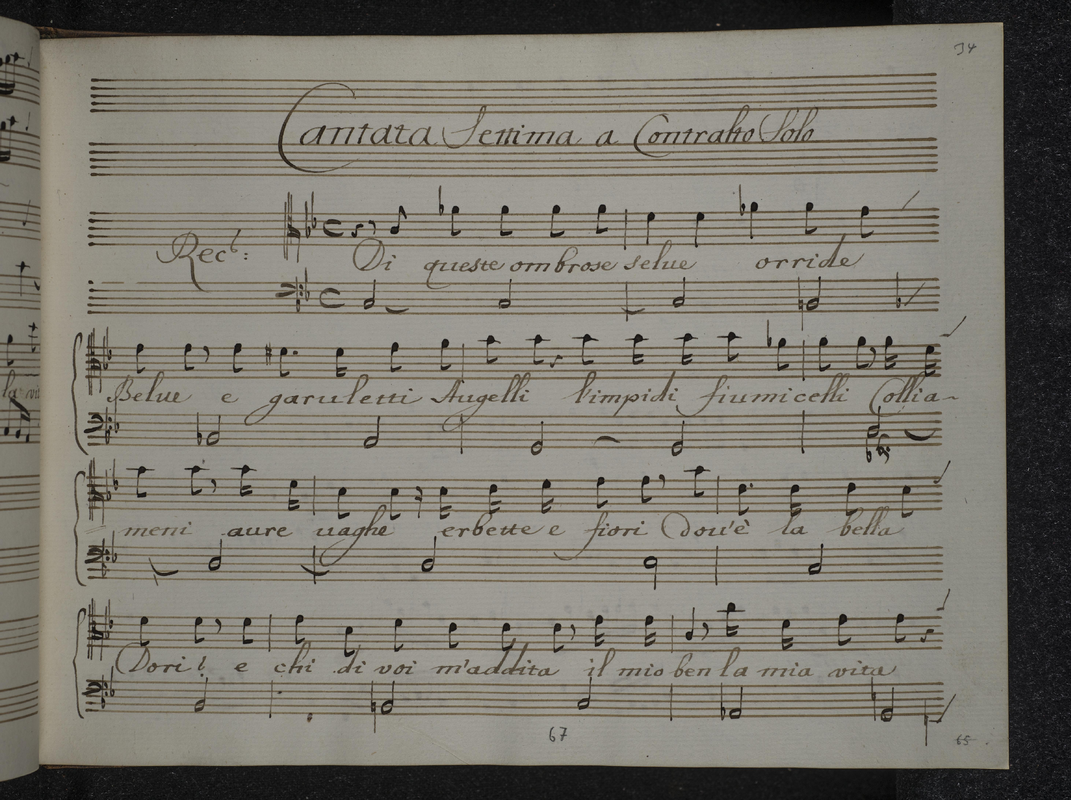 34
Cantata Settima a Contralto Solo
Rec.t:
Di queste ombrose selue orride
Belue e garuletti Augelli limpidi fiumicelli Collia-
meni aure uaghe erbette e fiori Dou'è la bella
Dori? e chi di voi m'addita il mio ben la mia vita
67
65